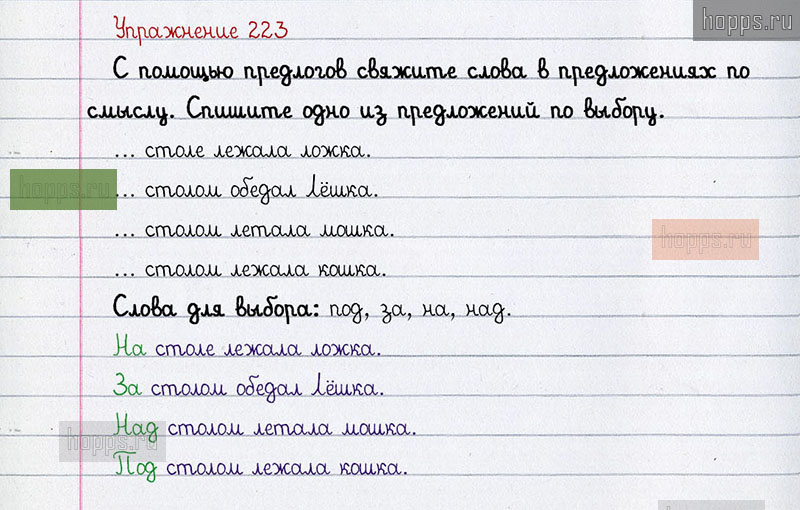 hopps.ru
Упражнение 223
С помощью предлогов свяжите слова в предложениях по
смыслу. Спишите одно из предложений по выбору.
... столе лежала ложка.
hopps.ru
... столом обедал Лёшка.
... столом летала мошка.
hopps.ru
... столом лежала кошка.
Слова для выбора: под, за, на, над.
На столе лежала ложка.
За столом обедал Лёшка.
Над столом летала мошка.
hopps.ru
Под столом лежала кошка.